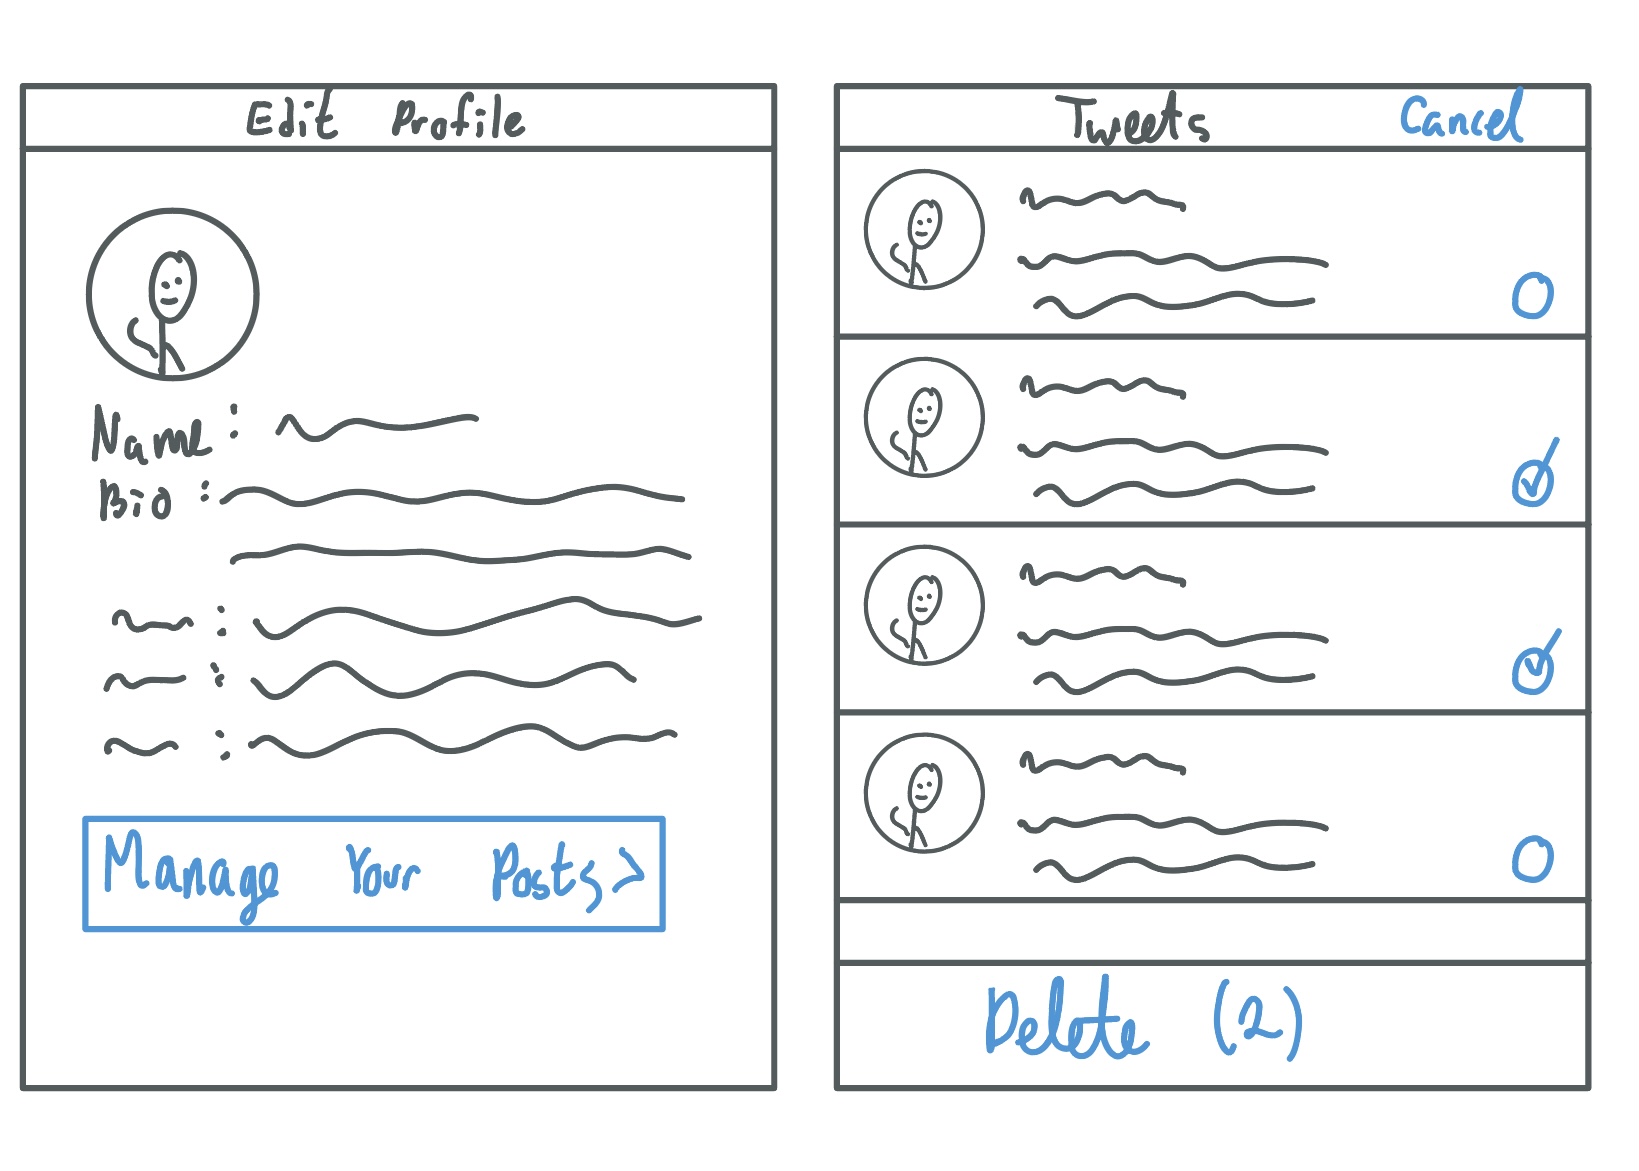 Edit Profile
Name:
Bio:
Manage Your Posts >
Tweets
Cancel
Delete (2)